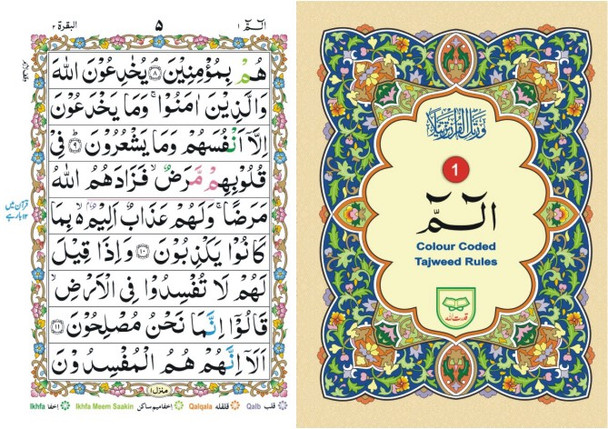 البقرة ٢
٥
الٓمّٓ ١
هُمْ بِمُؤْمِنِيْنَ ۘ ﴿٨﴾ يُخٰدِعُوْنَ اللّٰهَ
وَالَّذِيْنَ اٰمَنُوْا ۚ وَمَا يَخْدَعُوْنَ
اِلَّاۤ اَنْفُسَهُمْ وَمَا يَشْعُرُوْنَ ؕ ﴿٩﴾ فِيْ
قُلُوْبِهِمْ مَّرَضٌ ۙ فَزَادَهُمُ اللّٰهُ
مَرَضًا ۚ وَلَهُمْ عَذَابٌ اَلِيْمٌۢ ۙ۬ بِمَا
كَانُوْا يَكْذِبُوْنَ ﴿١٠﴾ وَاِذَا قِيْلَ
لَهُمْ لَا تُفْسِدُوْا فِى الْاَرْضِ ۙ
قَالُوْۤا اِنَّمَا نَحْنُ مُصْلِحُوْنَ ﴿١١﴾
اَلَاۤ اِنَّهُمْ هُمُ الْمُفْسِدُوْنَ
منزل ١
Ikhfa اخفا
Ikhfa Meem Saakin اخفا میم ساکن
Qalqala قلقله
Qalb قلب
وَرَتِّلِ الْقُرْاٰنَ تَرْتِيْلًا
1
الٓمّٓ
Colour Coded
Tajweed Rules
قدرت اللہ